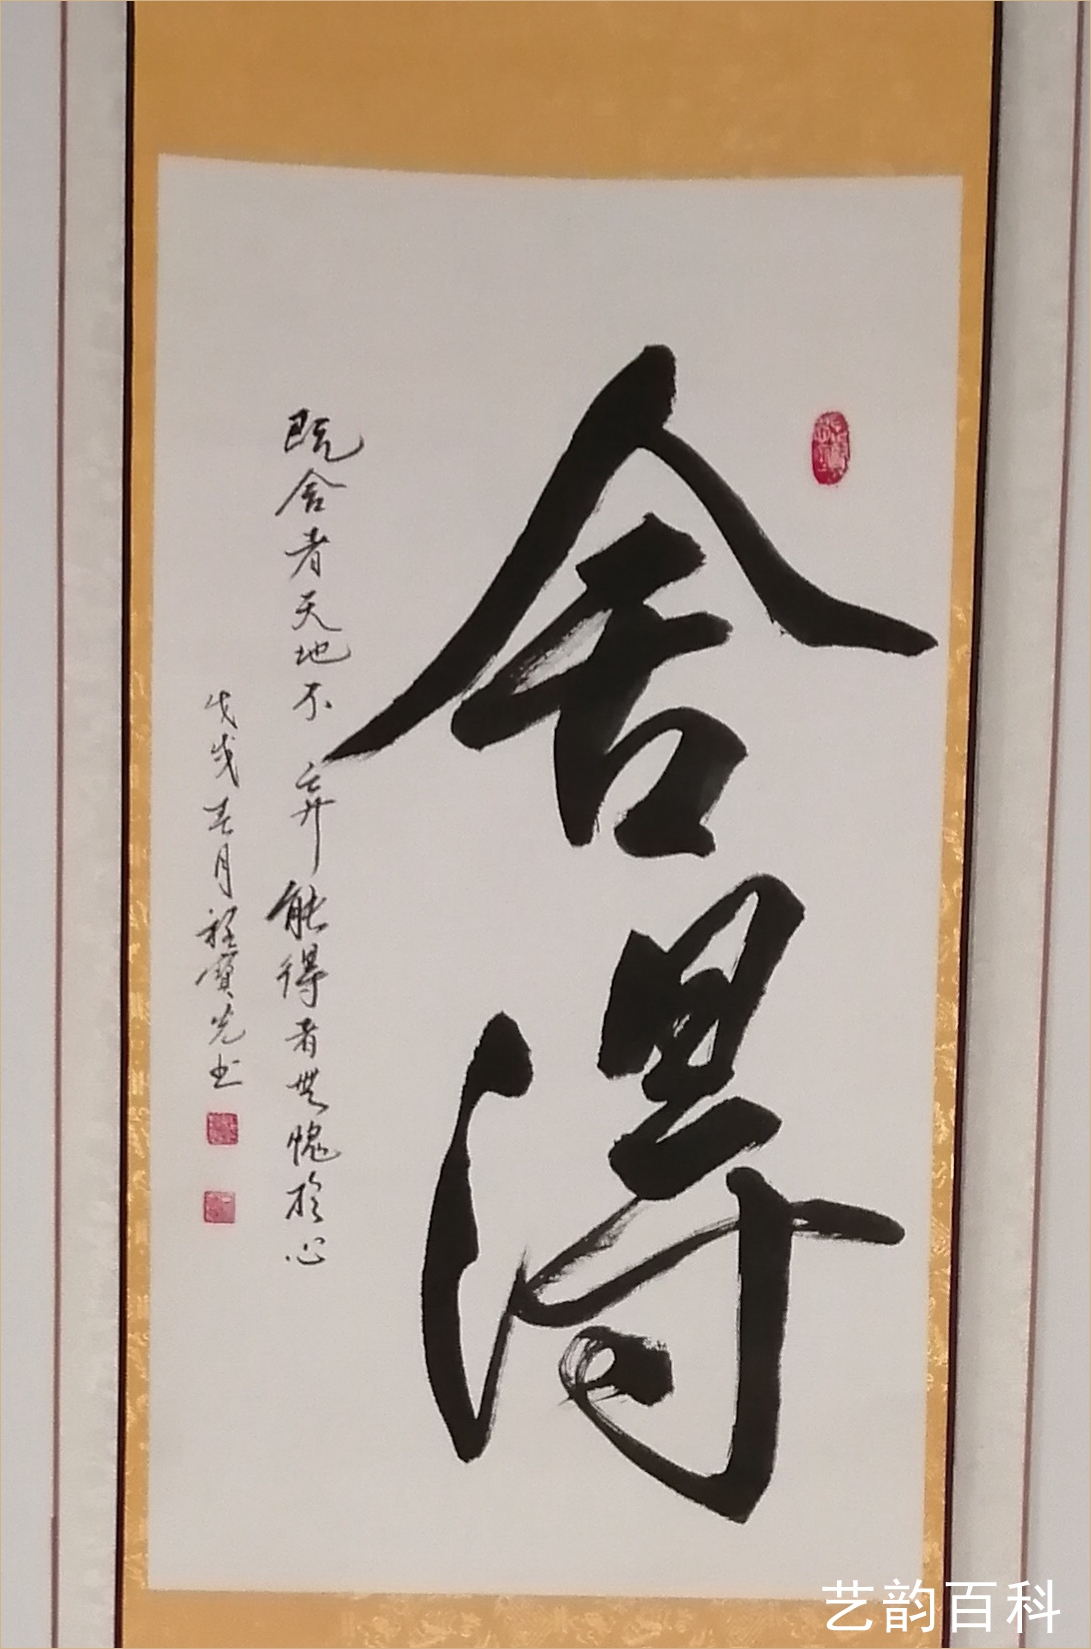 舍得
既舍者天地不弃能得者無愧於心
戊戌春月程寶光书
艺韵百科